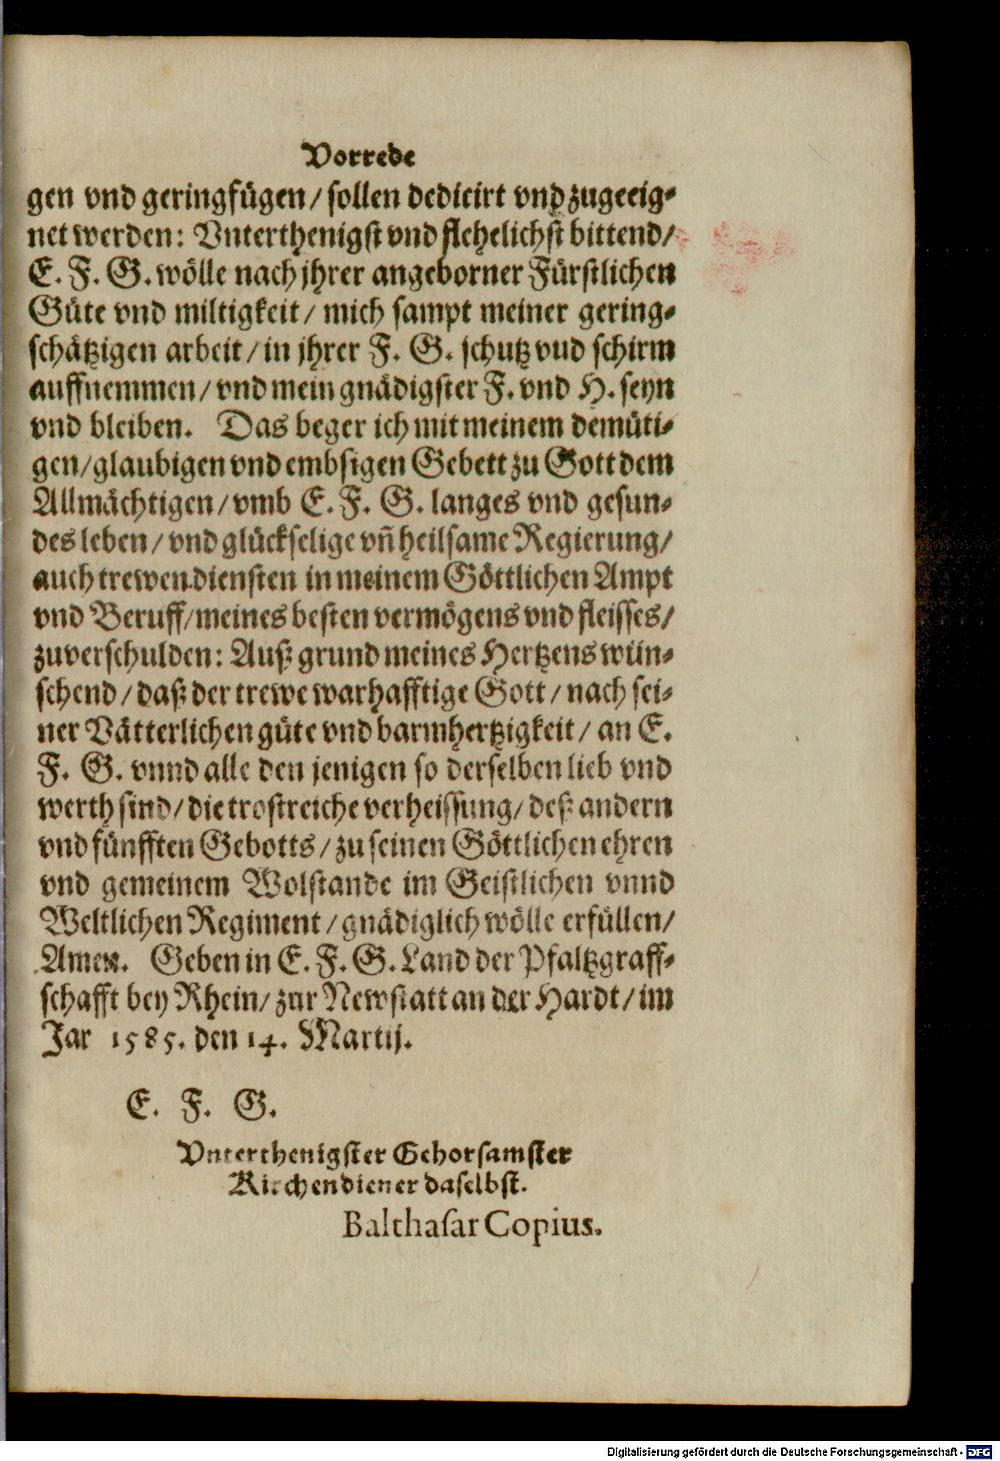 Vorrede
gen vnd geringfügen/ sollen dedicirt vnd zugeeig-
net werden: Vnterthenigst vnd flehelichst bittend/
E. F. G. wölle nach jhrer angeborner Fürstlichen
Güte vnd miltigkeit/ mich sampt meiner gering-
schätzigen arbeit/ in jhrer F. G. schutz vud schirm
auffnemmen/ vnd mein gnädigster F. vnd H. seyn
vnd bleiben. Das beger ich mit meinem demüti-
gen/ glaubigen vnd embsigen Gebett zu Gott dem
Allmächtigen/ vmb E. F. G. langes vnd gesun-
des leben/ vnd glückselige vñ heilsame Regierung/
auch trewen diensten in meinem Göttlichen Ampt
vnd Beruff/ meines besten vermögens vnd fleisses/
zuverschulden: Auß grund meines Hertzens wün-
schend/ daß der trewe warhafftige Gott/ nach sei-
ner Vätterlichen güte vnd barmhertzigkeit/ an E.
F. G. vnnd alle den jenigen so derselben lieb vnd
werth sind/ die trostreiche verheissung/ deß andern
vnd fünfften Gebotts/ zu seinen Göttlichen ehren
vnd gemeinem Wolstande im Geistlichen vnnd
Weltlichen Regiment/ gnädiglich wölle erfüllen/
Amen. Geben in E. F. G. Land der Pfaltzgraff-
schafft bey Rhein/ zur Newstatt an der Hardt/ im
Jar 1585. den 14. Martij.
E. F. G.
Vnterthenigster Gehorsamster
Kirchendiener daselbst.
Balthasar Copius.
Digitalisierung gefördert durch die Deutsche Forschungsgemeinschaft - DFG